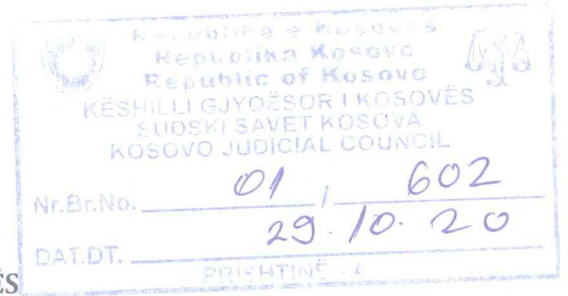 Republika e Kosovës
Republika Kosovo
Republic of Kosovo
KËSHILLI GJYQËSOR I KOSOVËS
SUDSKI SAVET KOSOVA
KOSOVO JUDICIAL COUNCIL
Nr.Br.No. 01 / 602
DAT.DT. 29.10.20
PRISHTINË - 4
ËS